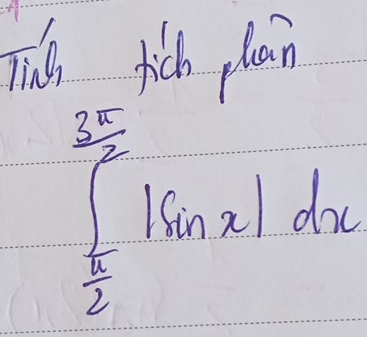 Tính tích phân
∫_{π/2}^{3π/2} |sin x| dx